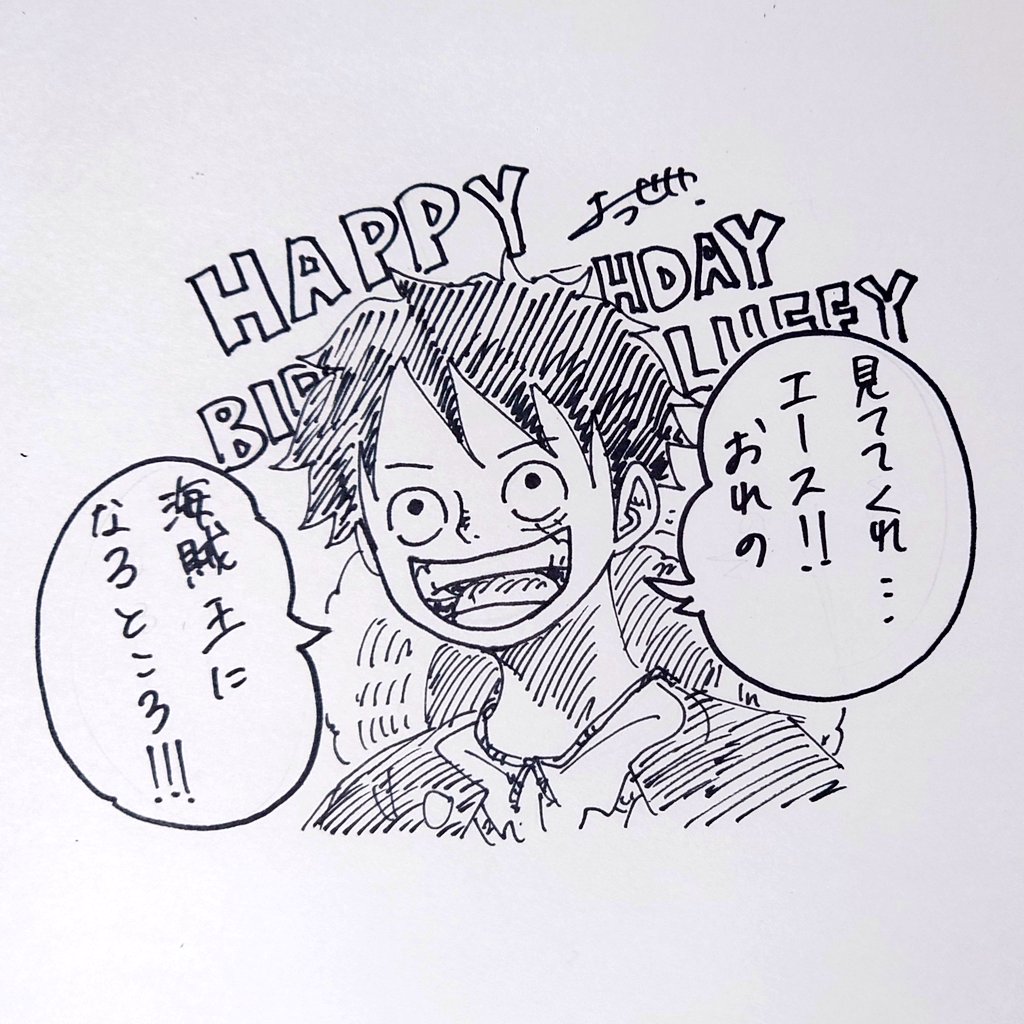 HAPPY
BIR HDAY
LUFFY
見ててくれ…
エース!!
おれの
海賊王に
なるところ!!!